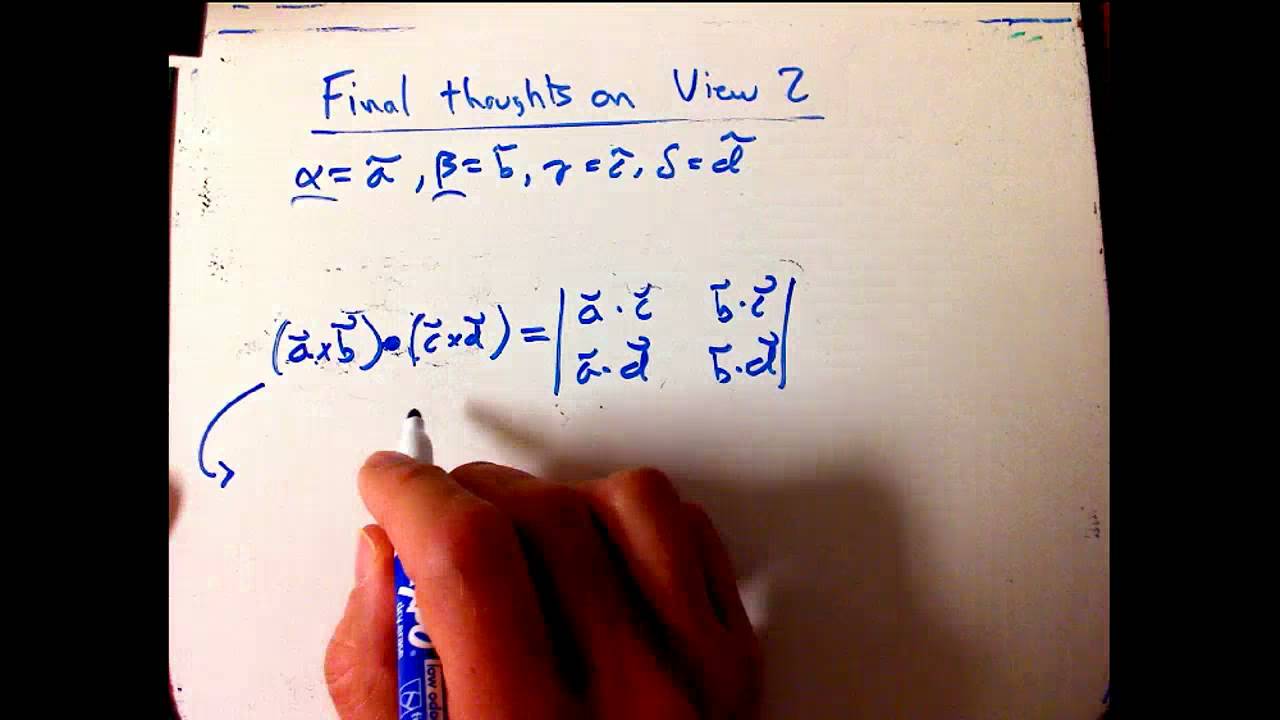 Final thoughts on View 2
α = ã, β = b̃, γ = c̃, δ = d̃
(a⃗ × b⃗) • (c⃗ × d⃗) = | a⃗ · c⃗  b⃗ · c⃗ |
| a⃗ · d⃗  b⃗ · d⃗ |
dry erase
low odo